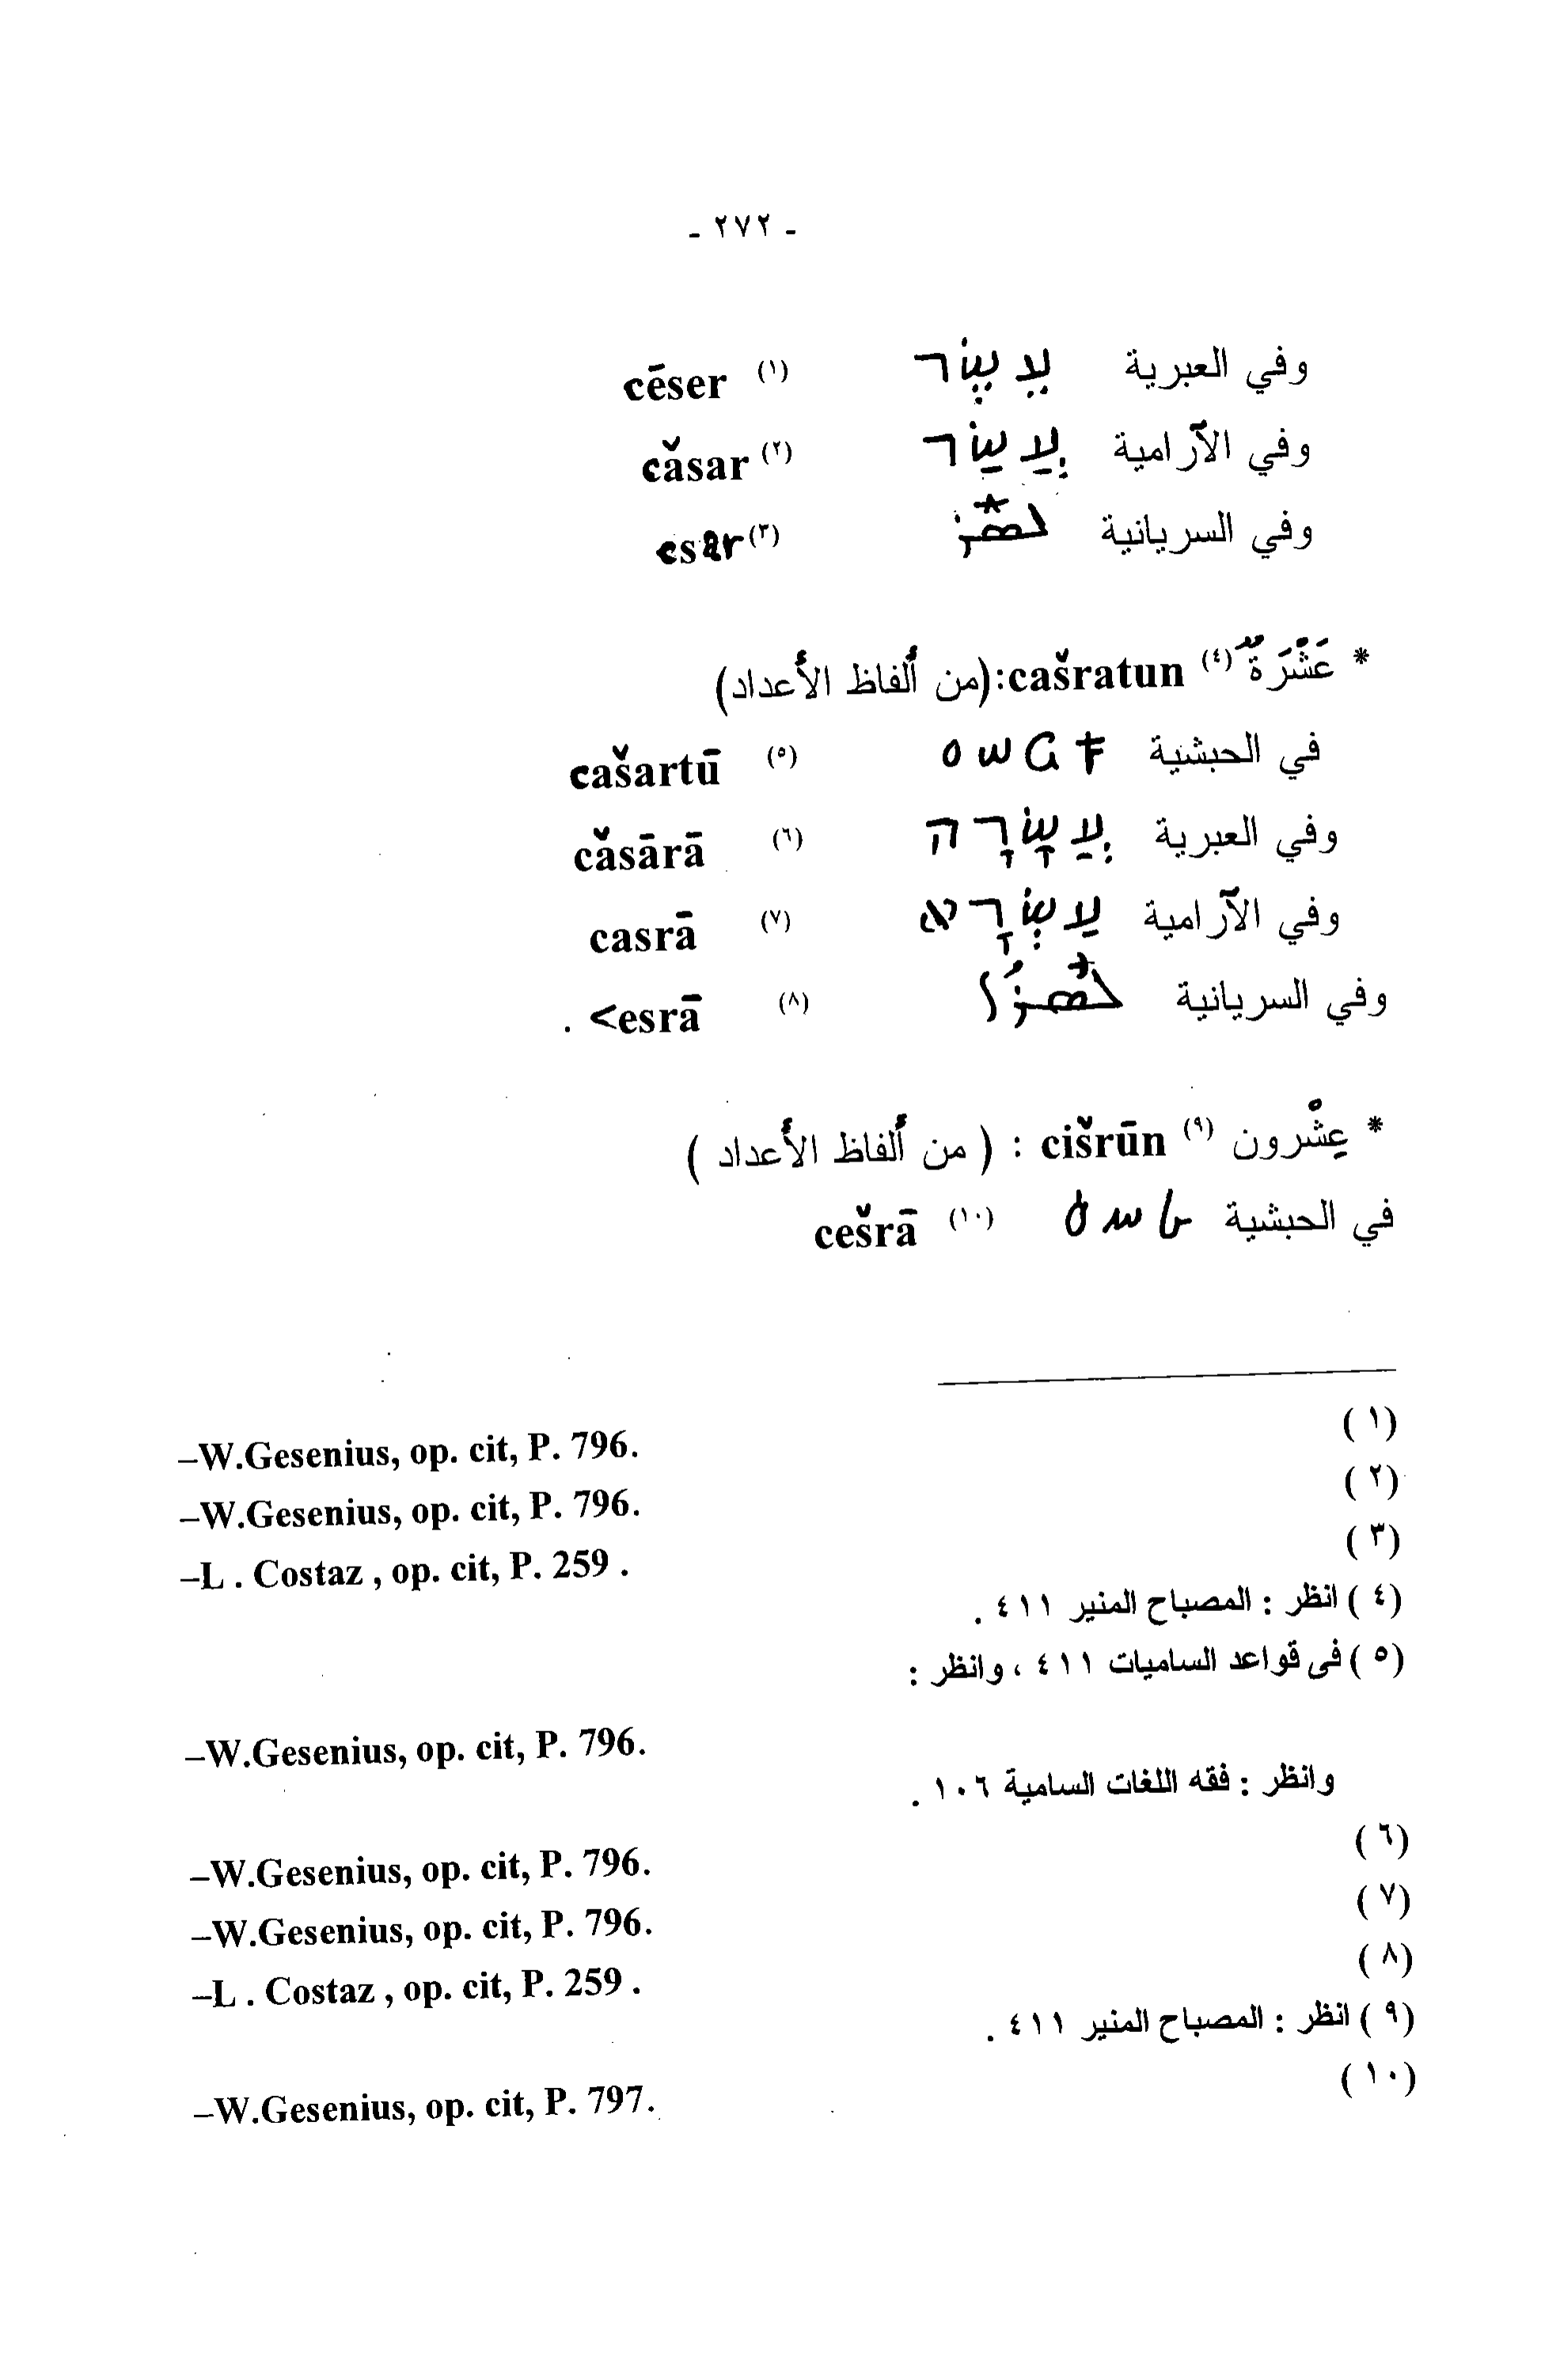 - ٢٧٢ -
وفي العبرية עֵשֶׂר céser (١)
وفي الآرامية עֲשַׂר cǎsar (٢)
وفي السريانية ܥܣܪ esar (٣)
* عَشْرَةٌ (٤) cašratun:(من ألفاظ الأعداد)
في الحبشية ዐሠርቱ cašartū (٥)
وفي العبرية עֲשָׂרָה cǎsārā (٦)
وفي الآرامية עַשְׂרָא casrā (٧)
وفي السريانية ܥܣܪܐ <esrā (٨) .
* عِشْرون (٩) cišrūn : ( من ألفاظ الأعداد )
في الحبشية ዕሥራ cešrā (١٠)
(١) –W.Gesenius, op. cit, P. 796.
(٢) –W.Gesenius, op. cit, P. 796.
(٣) –L . Costaz , op. cit, P. 259 .
(٤) انظر : المصباح المنير ٤١١ .
(٥) فى قواعد الساميات ٤١١ ، وانظر :
–W.Gesenius, op. cit, P. 796.
وانظر : فقه اللغات السامية ١٠٦ .
(٦) –W.Gesenius, op. cit, P. 796.
(٧) –W.Gesenius, op. cit, P. 796.
(٨) –L . Costaz , op. cit, P. 259 .
(٩) انظر : المصباح المنير ٤١١ .
(١٠) –W.Gesenius, op. cit, P. 797.